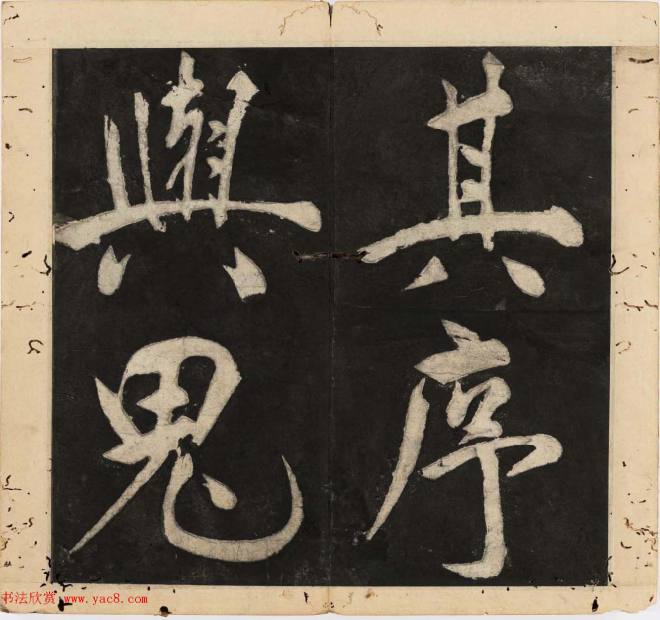 其序
與鬼
书法欣赏 www.yac8.com